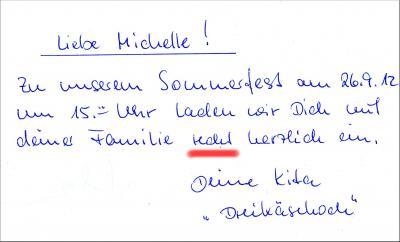 Liebe Michelle!
Zu unserem Sommerfest am 26.9.12
um 15.- Uhr laden wir Dich mit
deiner Familie recht herzlich ein.
Deine Kita
„Dreikäsehoch"